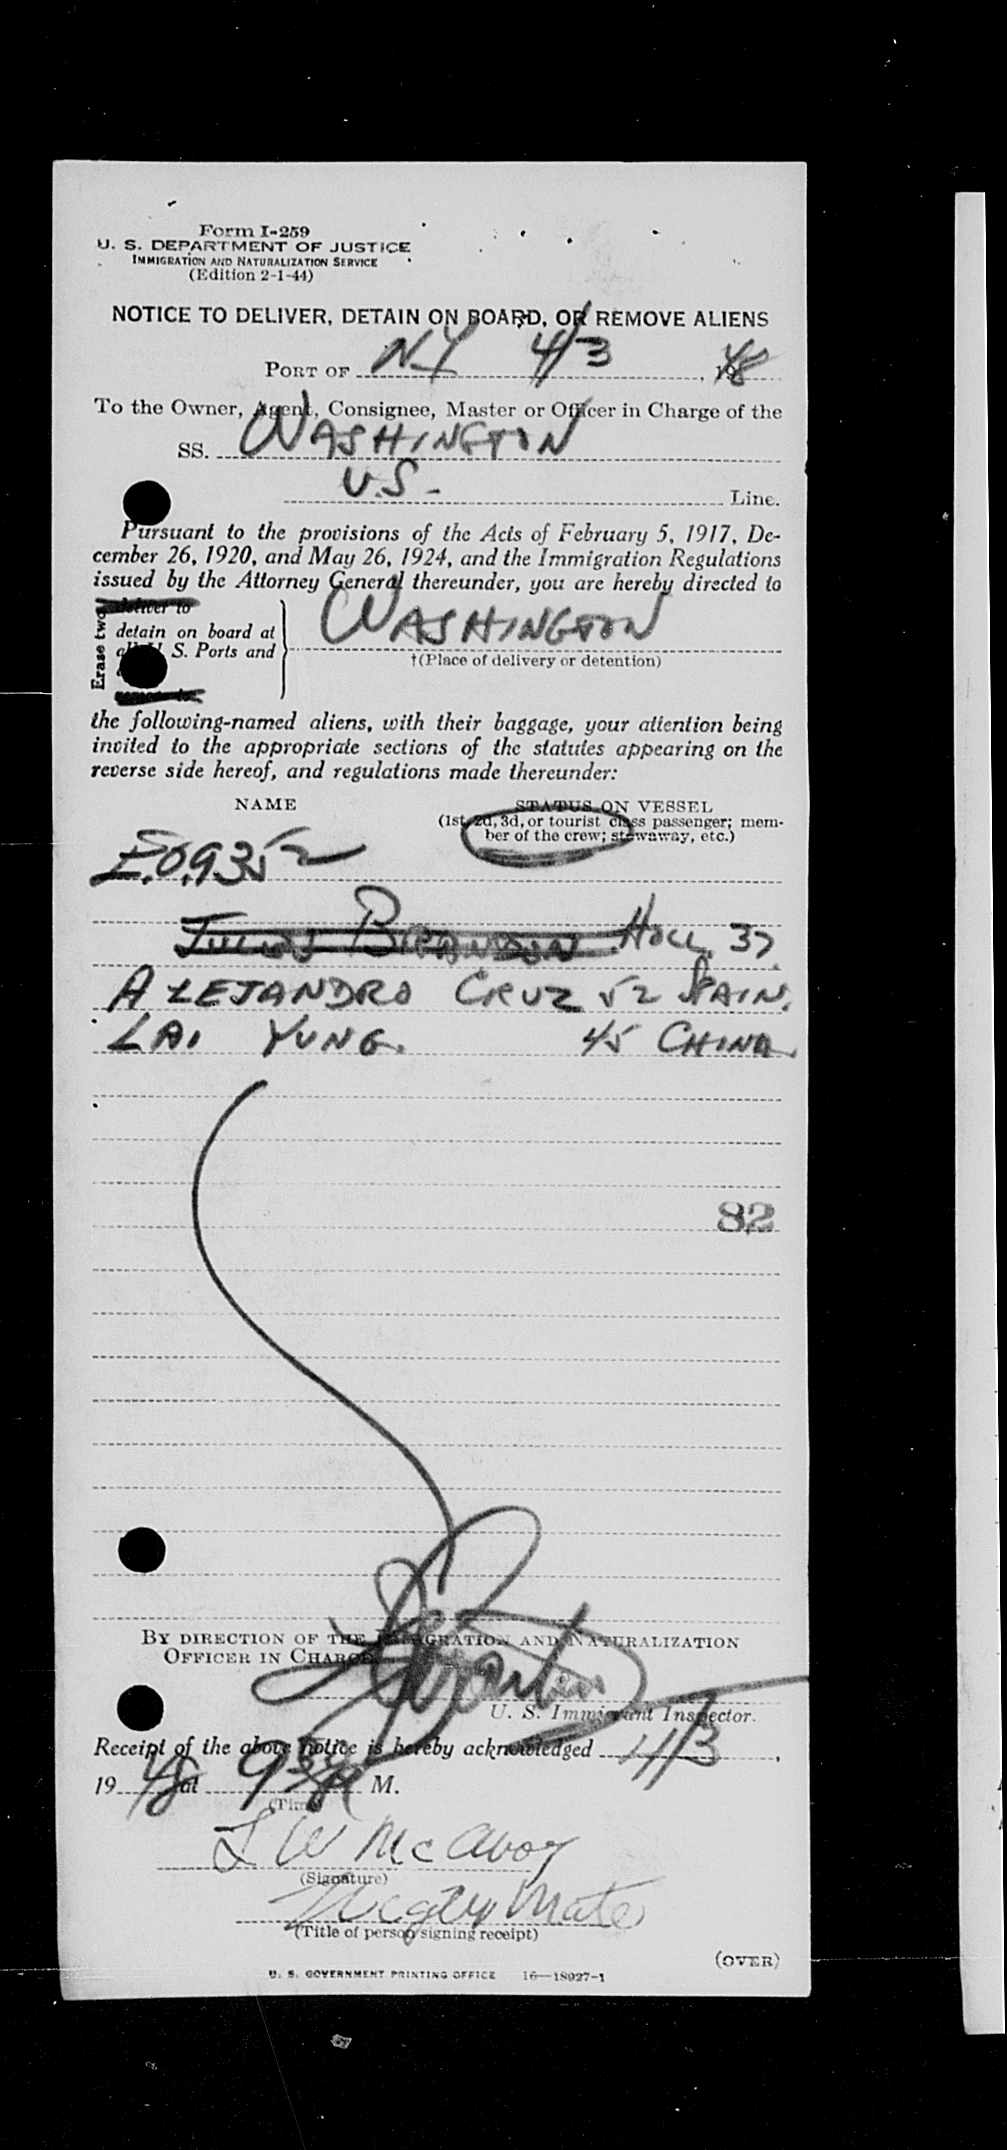 Form I-259
U. S. DEPARTMENT OF JUSTICE
IMMIGRATION AND NATURALIZATION SERVICE
(Edition 2-1-44)
NOTICE TO DELIVER, DETAIN ON BOARD, OR REMOVE ALIENS
PORT OF NY 4/3, 1948
To the Owner, Agent, Consignee, Master or Officer in Charge of the
SS. WASHINGTON
U.S. - Line.
Pursuant to the provisions of the Acts of February 5, 1917, De-
cember 26, 1920, and May 26, 1924, and the Immigration Regulations
issued by the Attorney General thereunder, you are hereby directed to
Erase two
deliver to
detain on board at
all U. S. Ports and
WASHINGTON
†(Place of delivery or detention)
the following-named aliens, with their baggage, your attention being
invited to the appropriate sections of the statutes appearing on the
reverse side hereof, and regulations made thereunder:
NAME
STATUS ON VESSEL
(1st, 2d, 3d, or tourist class passenger; mem-
ber of the crew; stowaway, etc.)
E.O. 9352
BRANDON HOLL. 37
ALEJANDRO CRUZ 52 SPAIN.
LAI YUNG. 45 CHINA.
82
BY DIRECTION OF THE IMMIGRATION AND NATURALIZATION
OFFICER IN CHARGE
U. S. Immigrant Inspector.
Receipt of the above notice is hereby acknowledged 4/3,
1948 at 9 M.
(Time)
L W McAvoy
(Signature)
Mate
(Title of person signing receipt)
(OVER)
U. S. GOVERNMENT PRINTING OFFICE 16—18927-1